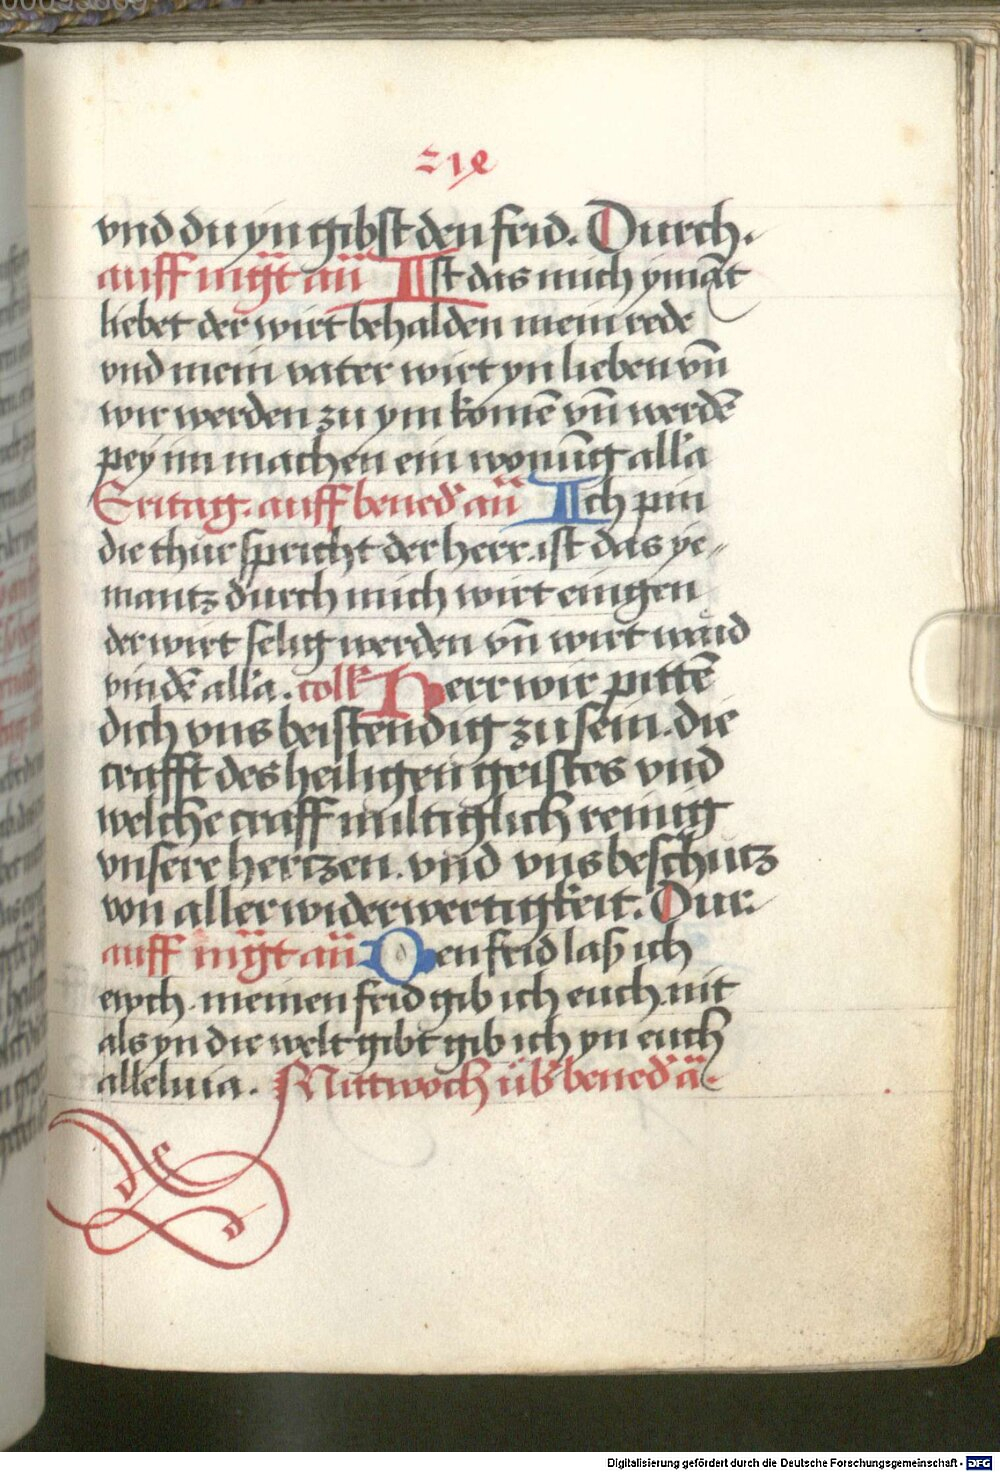 vnd du yn gibst den frid. Durch.
auff mgt̄ an̄ Ist das mich ymāt
liebet der wirt behalden mein rede
vnd mein vater wirt yn lieben vn̄
wir werden zu ym komē vn̄ werdē
pey im machen ein wonūg alla
Eritag. auff bened' an̄ Ich pin
die thur spricht der herr. ist das ye-
mantz durch mich wirt eingen
der wirt selig werden vn̄ wirt waid
vindē alla. coll Herr wir pittē
dich vns beistendig zu sein. die
crafft des heiligen geistes vnd
welche craff miltiglich reinig
vnsere hertzen. vnd vns beschutz
von aller widerwertigkeit. Dur.
auff mgt̄ an̄ Den frid laß ich
ewch. meinen frid gib ich euch. nit
als yn die welt gibt gib ich yn euch
alleluia. Mittwoch üb' bened' ā.
Digitalisierung gefördert durch die Deutsche Forschungsgemeinschaft - DFG